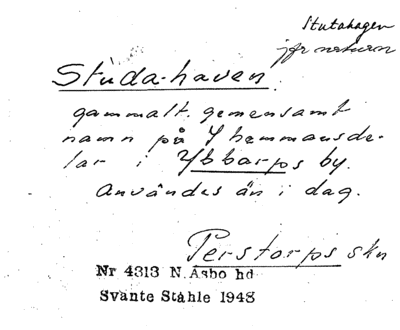 Stutahagen
jfr naturn
Studa-haven.
gammalt. gemensamt
namn på 4 hemmansde-
lar i Ybbarps by.
Användes än i dag.
Perstorps skn
Nr 4313 N. Åsbo hd
Svante Ståhle 1948